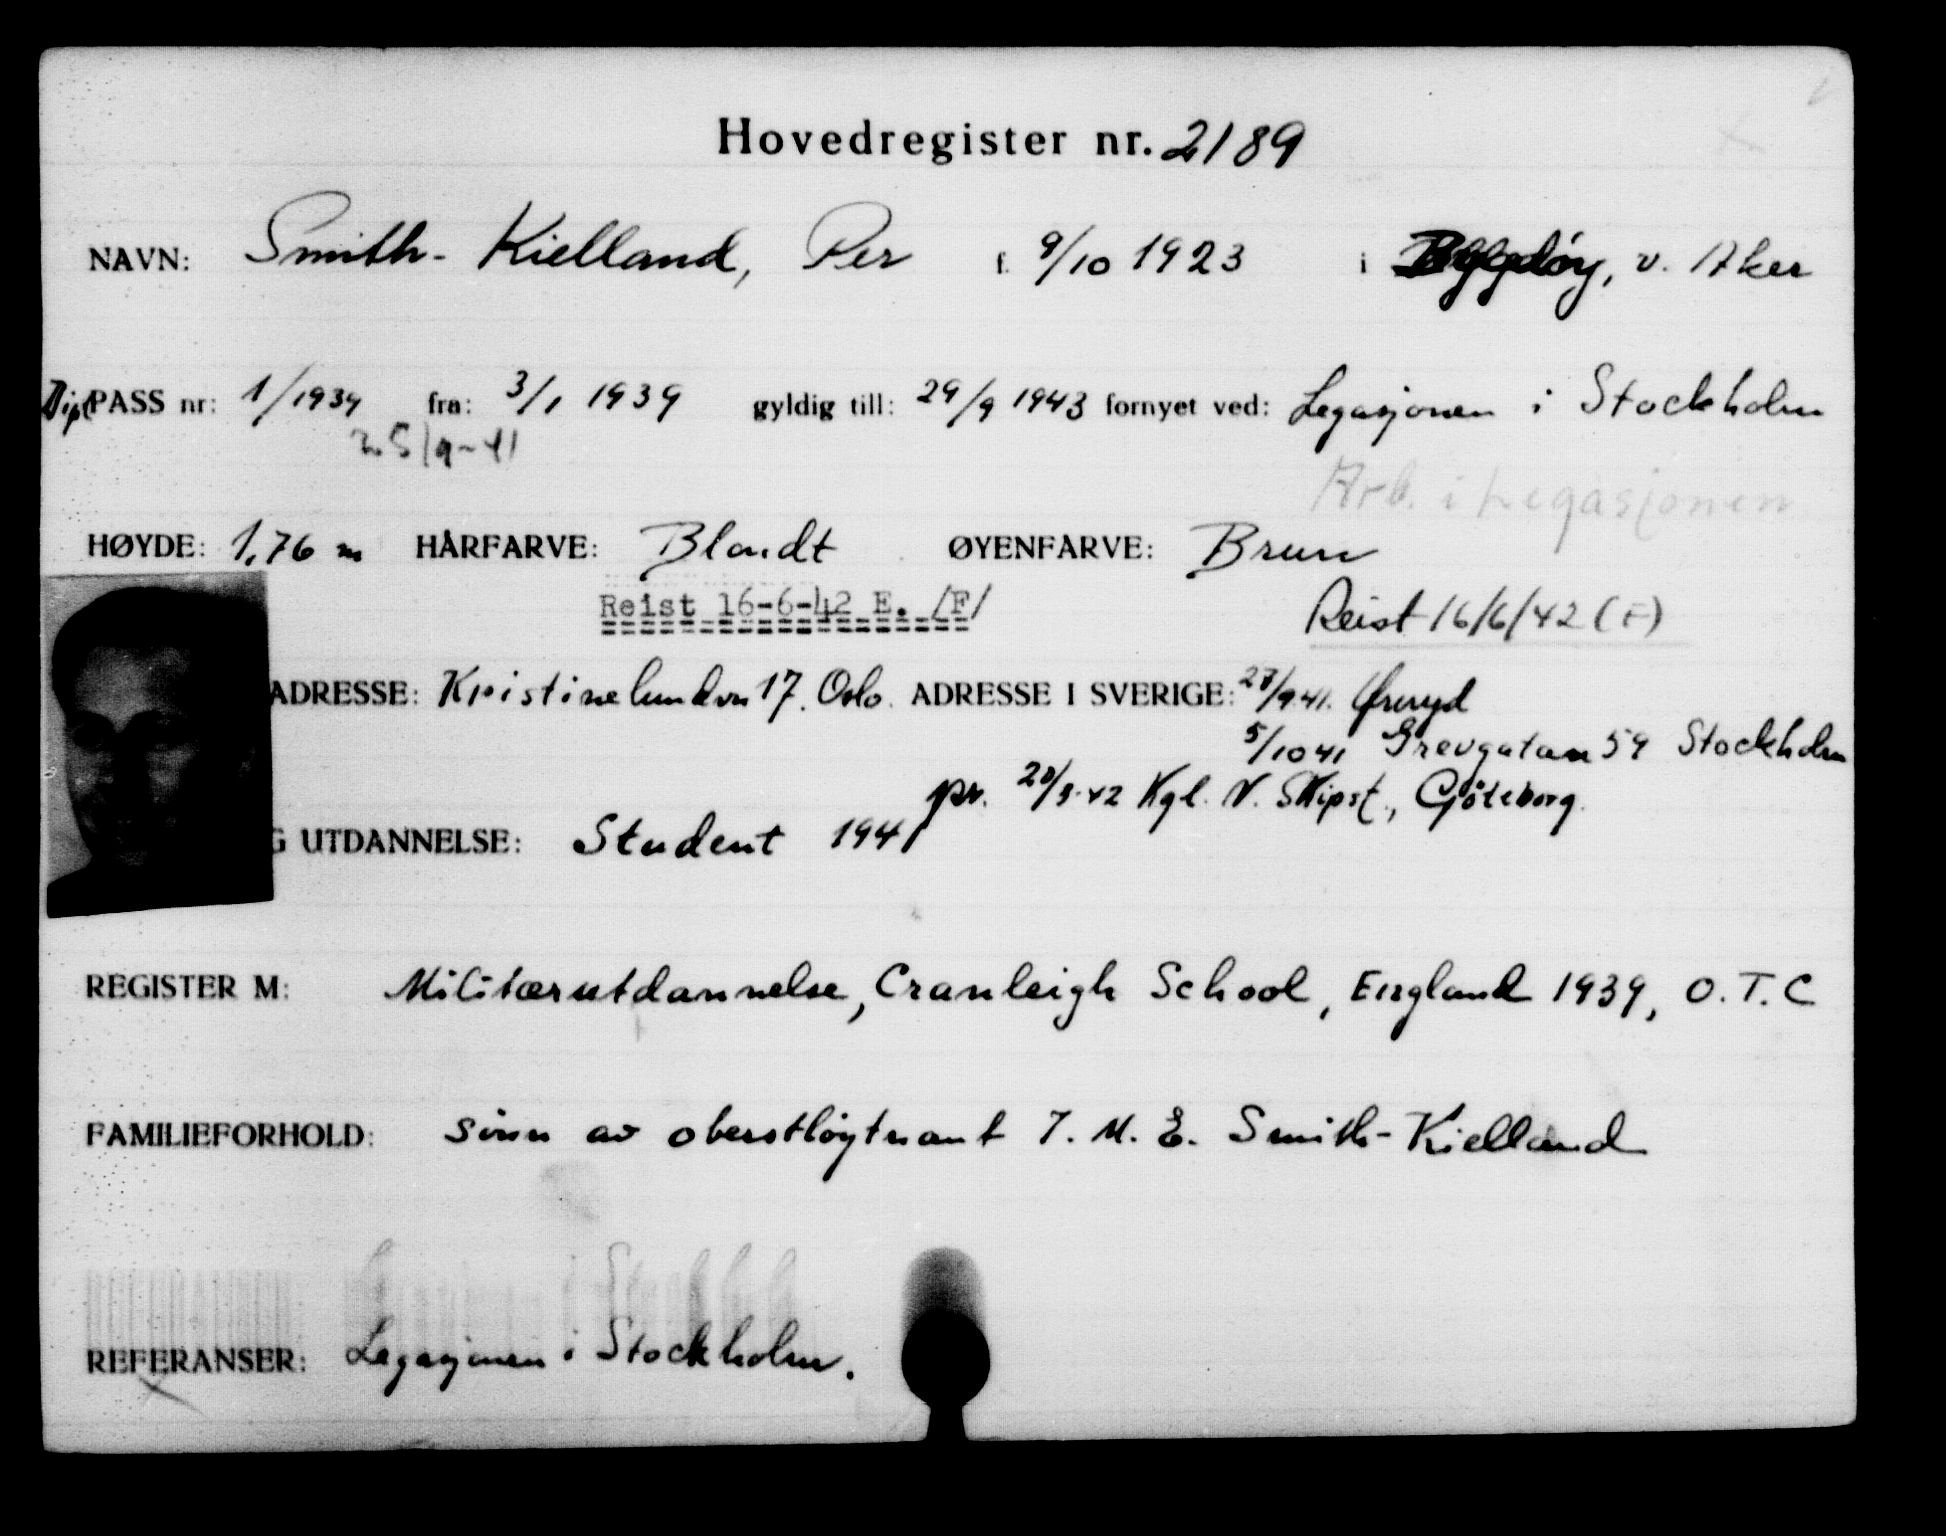 Hovedregister nr. 2189
NAVN: Smith-Kielland, Per f. 9/10 1923 i Bygdøy, v. Aker
Dipl PASS nr: 1/1939 fra: 3/1 1939 gyldig till: 29/9 1943 fornyet ved: Legasjonen i Stockholm
25/9-41
Arb. i Legasjonen
HØYDE: 1,76 m HÅRFARVE: Blondt ØYENFARVE: Brun
Reist 16-6-42 E. /F/
Reist 16/6/42 (F)
ADRESSE: Kristinelundvn 17. Oslo. ADRESSE I SVERIGE: 27/9 41. Øreryd
5/10 41 Grevgatan 59 Stockholm
pr. 20/3-42 Kgl. N. Skipsf., Göteborg.
G UTDANNELSE: Student 1941
REGISTER M: Militærutdannelse, Cranleigh School, England 1939, O.T.C
FAMILIEFORHOLD: Sønn av oberstløytnant I. M. E. Smith-Kielland
REFERANSER: Legasjonen i Stockholm.